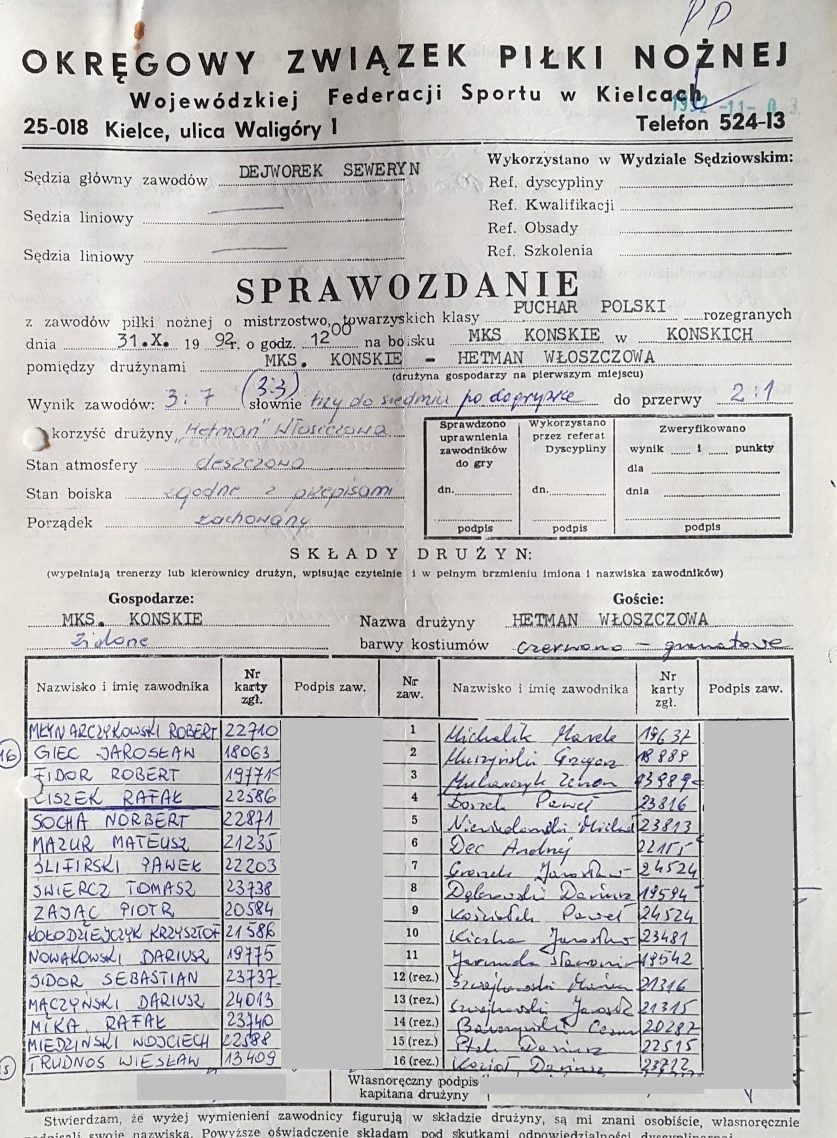 PP
OKRĘGOWY ZWIĄZEK PIŁKI NOŻNEJ
Wojewódzkiej Federacji Sportu w Kielcach
1992 -11-
25-018 Kielce, ulica Waligóry 1 Telefon 524-13
Sędzia główny zawodów DEJWOREK SEWERYN
Sędzia liniowy
Sędzia liniowy
Wykorzystano w Wydziale Sędziowskim:
Ref. dyscypliny
Ref. Kwalifikacji
Ref. Obsady
Ref. Szkolenia
SPRAWOZDANIE
z zawodów piłki nożnej o mistrzostwo, towarzyskich klasy PUCHAR POLSKI rozegranych
dnia 31.X. 19 92 r. o godz. 12 00 na boisku MKS KONSKIE w KONSKICH
pomiędzy drużynami MKS. KONSKIE - HETMAN WŁOSZCZOWA
(drużyna gospodarzy na pierwszym miejscu)
Wynik zawodów: 3:7 (3:3) słownie trzy do siedmiu po dogrywce do przerwy 2:1
korzyść drużyny "Hetman" Włoszczowa
Stan atmosfery deszczowa
Stan boiska zgodne z przepisami
Porządek zachowany
Sprawdzono uprawnienia zawodników do gry
dn.
podpis
Wykorzystano przez referat Dyscypliny
dn.
podpis
Zweryfikowano
wynik 1 punkty
dla
dnia
podpis
SKŁADY DRUŻYN:
(wypełniają trenerzy lub kierownicy drużyn, wpisując czytelnie i w pełnym brzmieniu imiona i nazwiska zawodników)
Gospodarze: Goście:
MKS. KONSKIE Nazwa drużyny HETMAN WŁOSZCZOWA
Zielone barwy kostiumów czerwono - granatowe
Nazwisko i imię zawodnika Nr karty zgł. Podpis zaw. Nr zaw. Nazwisko i imię zawodnika Nr karty zgł. Podpis zaw.
MŁYNARCZYKOWSKI ROBERT 22710 1 Michalik Marek 19637
16 GIEC JAROSŁAW 18063 2 Muszyński Grzegorz 18889
FIDOR ROBERT 19771 3 Mularczyk Zenon
CISZEK RAFAŁ 22586 4 Paweł 23816
SOCHA NORBERT 22871 5 23813
MAZUR MATEUSZ 21235 6 Dec Andrzej
ŚLIFIRSKI PAWEŁ 22203 7 Jarosław 24524
ŚWIERCZ TOMASZ 23738 8 Dąbrowski Dariusz 19594
ZAJĄC PIOTR 20584 9 Paweł 24524
KOŁODZIEJCZYK KRZYSZTOF 21586 10 Jarosław 23481
NOWAKOWSKI DARIUSZ 19775 11 19542
SIDOR SEBASTIAN 23737 12 (rez.) 21316
MĄCZYŃSKI DARIUSZ 24013 13 (rez.) 21315
MIKA RAFAŁ 23740 14 (rez.) 20287
MIEDZIŃSKI WOJCIECH 22588 15 (rez.) Ptak Dariusz 22515
TRUDNOS WIESŁAW 13409 16 (rez.) Kozioł Dariusz 23712
Własnoręczny podpis
kapitana drużyny
Stwierdzam, że wyżej wymienieni zawodnicy figurują w składzie drużyny, są mi znani osobiście, własnoręcznie
swoje nazwiska. Powyższe oświadczenie składam pod skutkami odpowiedzialności